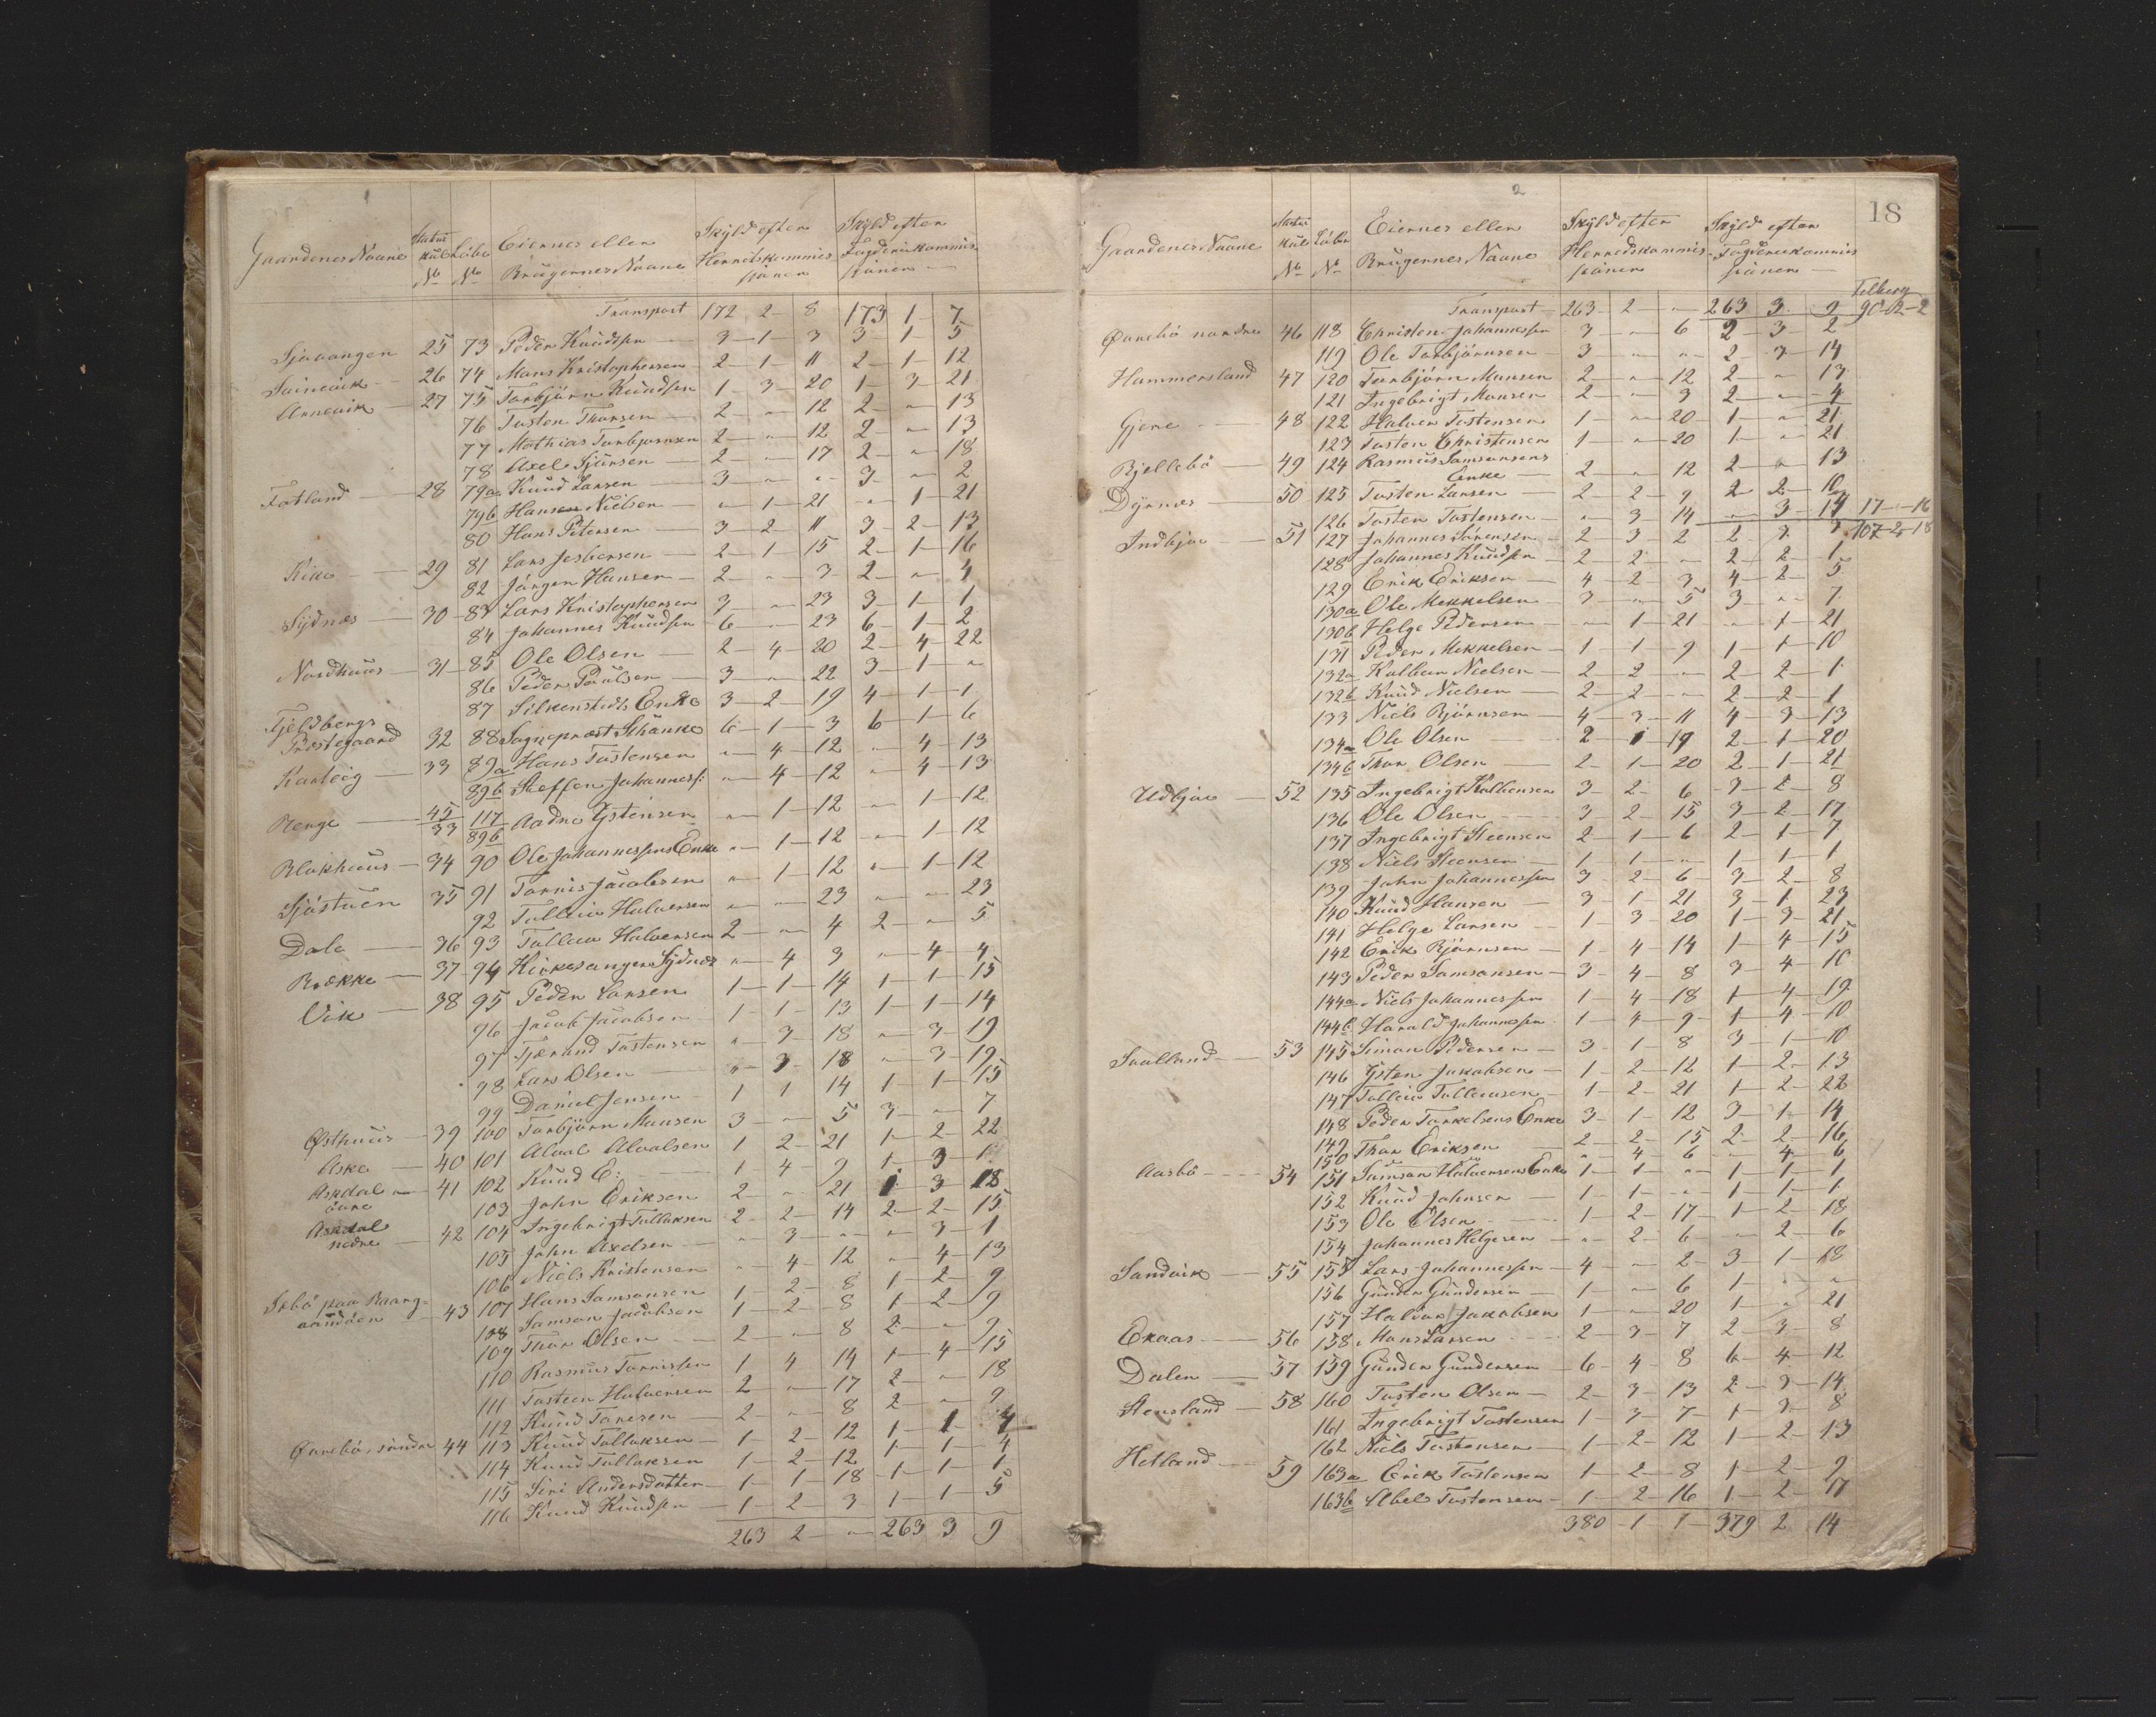 Gaardenes Navne Matrikul No Løbe No Eiernes eller Brugernes Navne Skyld efter Herredskommissjonen Skyld efter Fogderikommissionen
Transport 172 2 8 173 1 7
Sjovangen 25 73 Peder Knudsen 3 1 3 3 1 5
26 74 Mons Kristophersen 2 1 11 2 1 12
Arnevik 27 75 Torbjörn Knudsen 1 3 20 1 3 21
76 Tosten Thorsen 2 " 12 2 " 13
77 Mathias Torbjørnsen 2 " 12 2 " 13
78 Axel Sjursen 2 " 17 2 " 18
Fatland 28 79a Knud Larsen 3 " " 3 " 2
79b Hans Nielsen " 1 21 " 1 21
80 Hans Petersen 3 2 11 3 2 13
Rike 29 81 Lars Jespersen 2 1 15 2 1 16
82 Jörgen Hansen 2 " 3 2 " 4
Sydnæs 30 83 Lars Kristophersen 3 " 23 3 1 1
84 Johannes Knudsen 6 " 23 6 1 2
Nordhuus 31 85 Ole Olsen 2 4 20 2 4 22
86 Peder Poulsen 3 " 22 3 1 "
87 Silkenstedts Enke 3 2 19 4 1 1
Fjeldbergs
Præstegaard 32 88 Sogneprest Schanke 6 1 3 6 1 6
Karteig 33 89a Hans Tostensen " 4 12 " 4 13
89b Steffen Johanness: " 4 12 " 4 13
Renge 45/33 117/89b Aadne Ystensen " 1 12 " 1 12
Blokhuus 34 90 Ole Johannessens Enke " 1 12 " 1 12
Sjöstuen 35 91 Tornis Jacobsen " 1 12 " 1 12
92 Tollew Halvorsen " " 23 " " 23
Dale 36 93 Tollew Halvorsen 2 " 4 2 " 5
Bække 37 94 Kirkesanger Sydnes " 4 3 " 4 4
Vik 38 95 Peder Larsen 1 1 14 1 1 15
96 Jacob Jacobsen 1 1 13 1 1 14
97 Tjerand Tostensen " 3 18 " 3 19
98 Lars Olsen " 3 18 " 3 19
99 Daniel Jensen 1 1 14 1 1 15
Østhuus 39 100 Torbjörn Monsen 3 " 5 3 " 7
Aske 40 101 Alval Alvalsen 1 2 21 1 2 22
Askdal 41 102 Knud E: 1 4 9 1 3 1
övre 103 John Eriksen 2 " 21 1 3 18
Askdal
nedre 42 104 Ingebrigt Tollaksen 2 2 14 2 2 15
105 John Axelsen " 3 " " 3 1
106 Niels Kristensen " 4 12 " 4 13
43 107 Hans Samsonsen 1 2 8 1 2 9
108 Samson Jacobsen 1 2 8 1 2 9
109 Thor Olsen 2 " 8 2 " 9
110 Rasmus Tornissen 1 4 14 1 4 15
111 Tosten Halvorsen 2 " 17 2 " 18
112 Knud Toresen 2 " 8 2 " 9
Qvrebö söndre 44 113 Knud Tollaksen 1 2 12 1 1 4
114 Knud Tollaksen 1 2 12 1 1 4
115 Siri Andersdatter 1 1 18 1 1 1
116 Knud Knudsen 1 2 3 1 1 5
263 2 " 263 3 9
2
18
Gaardenes Navne Matrikul No Løbe No Eiernes eller Brugernes Navne Skyld efter Herredskommissionen Skyld efter Fogderikommissionen
Transport 263 2 " 263 3 9 90-2-2
Qvrebö nordre 46 118 Christen Johannessen 3 " 6 2 3 2
119 Ole Torbjörnsen 3 " " 2 3 14
Hammersland 47 120 Torbjörn Monsen 2 " 12 2 " 13
121 Ingebrigt Monsen 2 " 3 2 " 4
Gjere 48 122 Halvor Tostensen 1 " 20 1 " 21
123 Tosten Christensen 1 " 20 1 " 21
Bjellebö 49 124 Rasmus Samsonsens
Enke 2 " 12 2 " 13
Dyrnes 50 125 Tosten Larsen 2 2 9 2 2 10
126 Tosten Tostensen " 3 14 " 3 14 17 " 16
Indbjoe 51 127 Johannes Sörensen 2 3 2 2 3 3 107 2 18
128 Johannes Knudsen 2 2 " 2 2 1
129 Erik Eriksen 4 2 3 4 2 5
130a Ole Mekkelsen 3 " 5 3 " 7
130b Helge Pedersen " 1 21 " 1 21
131 Peder Mekkelsen 1 1 9 1 1 10
132a Kolben Nielsen 2 2 " 2 2 1
132b Knud Nielsen 2 2 " 2 2 1
133 Niels Björnsen 4 3 11 4 3 13
134a Ole Olsen 2 1 19 2 1 20
134b Thor Olsen 2 1 20 2 1 21
Udbjoe 52 135 Ingebrigt Kolbensen 3 2 6 3 2 8
136 Ole Olsen 3 2 15 3 2 17
137 Ingebrigt Steensen 2 1 6 2 1 7
138 Niels Steensen 1 1 " 1 1 1
139 John Johannessen 3 2 6 3 2 8
140 Knud Hansen 3 1 21 3 1 23
141 Helge Larsen 1 3 20 1 3 21
142 Erik Björnsen 1 4 14 1 4 15
143 Peder Samsonsen 3 4 8 3 4 10
144a Niels Johannessen 1 4 18 1 4 19
144b Harald Johannessen 1 4 9 1 4 10
53 145 Simon Pedersen 3 1 8 3 1 10
146 Ysten Jakobsen 1 2 12 1 2 13
147 Tollew Tollewsen 1 2 21 1 2 22
148 Peder Torkelsens Enke 3 1 12 3 1 14
149 Thor Eriksen 2 2 15 2 2 16
150 " 4 6 " 4 6
Aasbö 54 151 Samson Halvorsens Enke 1 1 " 1 1 1
152 Knud Johnsen 1 1 " 1 1 1
153 Ole Olsen 1 2 17 1 2 18
154 Johannes Helgesen " 2 6 " 2 6
Sandvik 55 155 Lars Johannessen 4 " 2 3 1 18
156 Gunder Gundersen 1 " 6 1 " "
157 Halvor Jakobsen 1 " 20 1 " 21
Ekaas 56 158 Mons Larsen 2 3 7 2 3 8
Dalen 57 159 Gunder Gundersen 6 4 8 6 4 12
Stensland 58 160 Tosten Olsen 2 3 13 2 3 14
161 Ingebrigt Tostensen 1 3 7 1 3 8
162 Niels Tostensen 1 2 12 1 2 13
Hetland 59 163a Erik Tostensen 1 2 8 1 2 9
163b Abel Tostensen 1 2 16 1 2 17
380 1 1 379 2 14